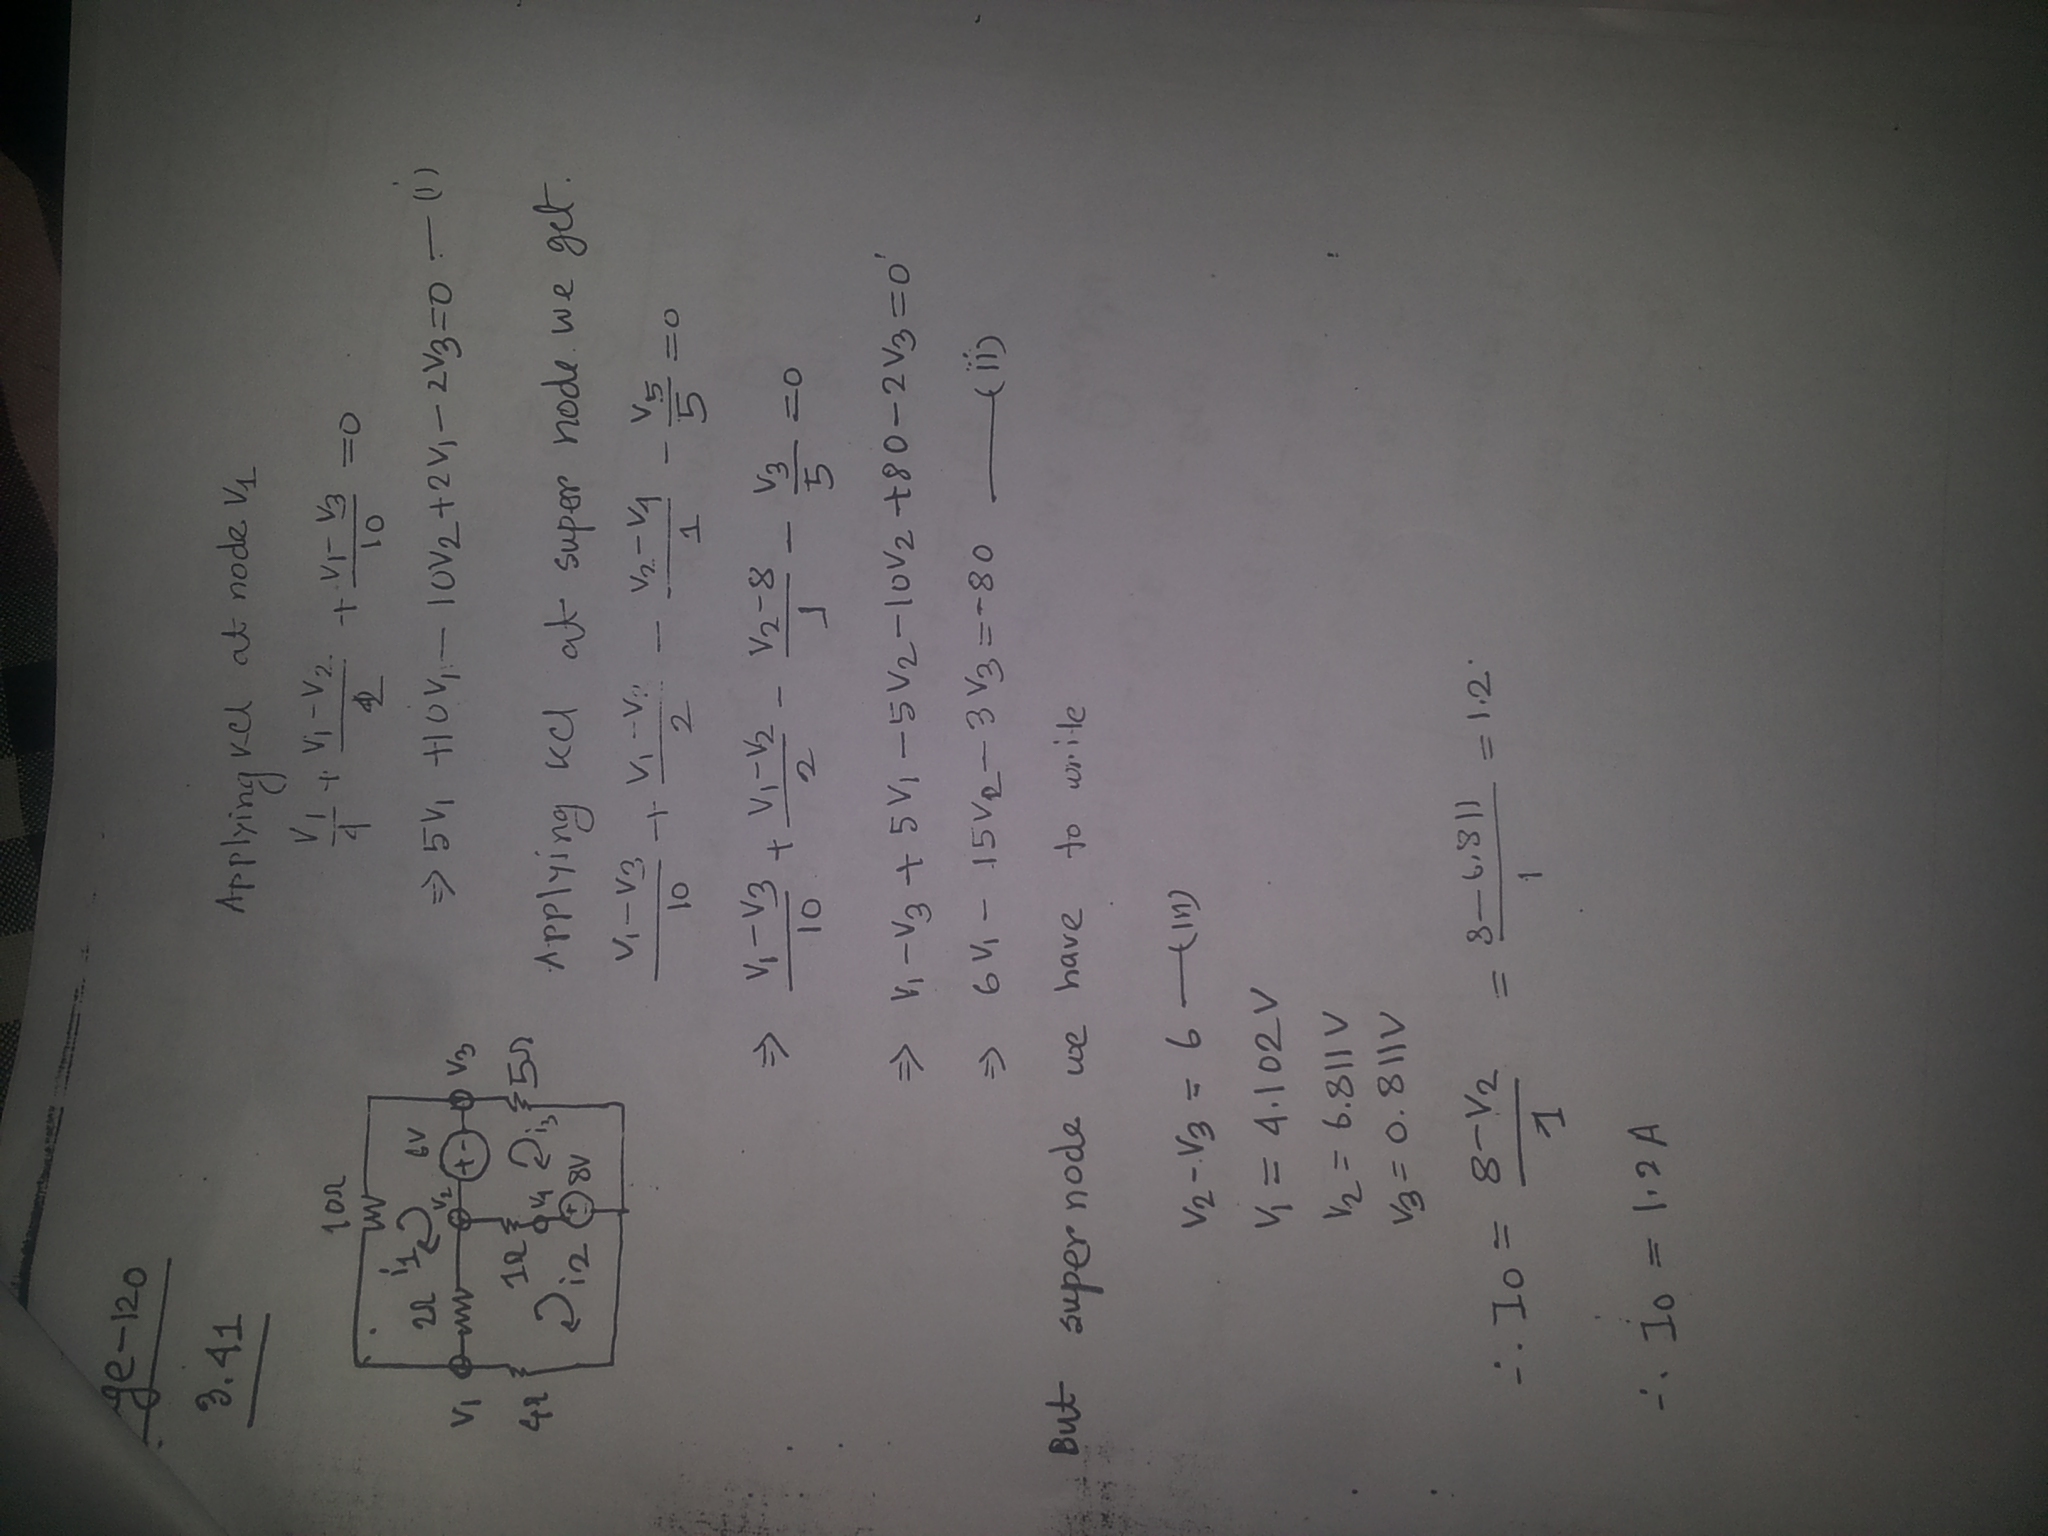 ge-120
3.41
10Ω
i1
2Ω
6V
V2
V1
+-
V3
4Ω
1Ω
V4
i3
5Ω
i2
8V
Applying kcl at node V1
V1/4 + V1-V2/2 + V1-V3/10 =0
⇒ 5V1 +10V1 - 10V2 +2V1 - 2V3=0 — (i)
Applying kcl at super node we get.
V1-V3/10 + V1-V2/2 - V2-V4/1 - V5/5 =0
⇒ V1-V3/10 + V1-V2/2 - V2-8/1 - V3/5 =0
⇒ V1-V3 + 5V1 -5V2-10V2 +80-2V3=0
⇒ 6V1 - 15V2 - 3V3 =-80 — (ii)
But super node we have to write
V2-V3 = 6 — (iii)
V1 = 4.102V
V2 = 6.811V
V3 = 0.811V
∴ I0 = 8-V2/1 = 8-6.811/1 = 1.2
∴ I0 = 1.2A